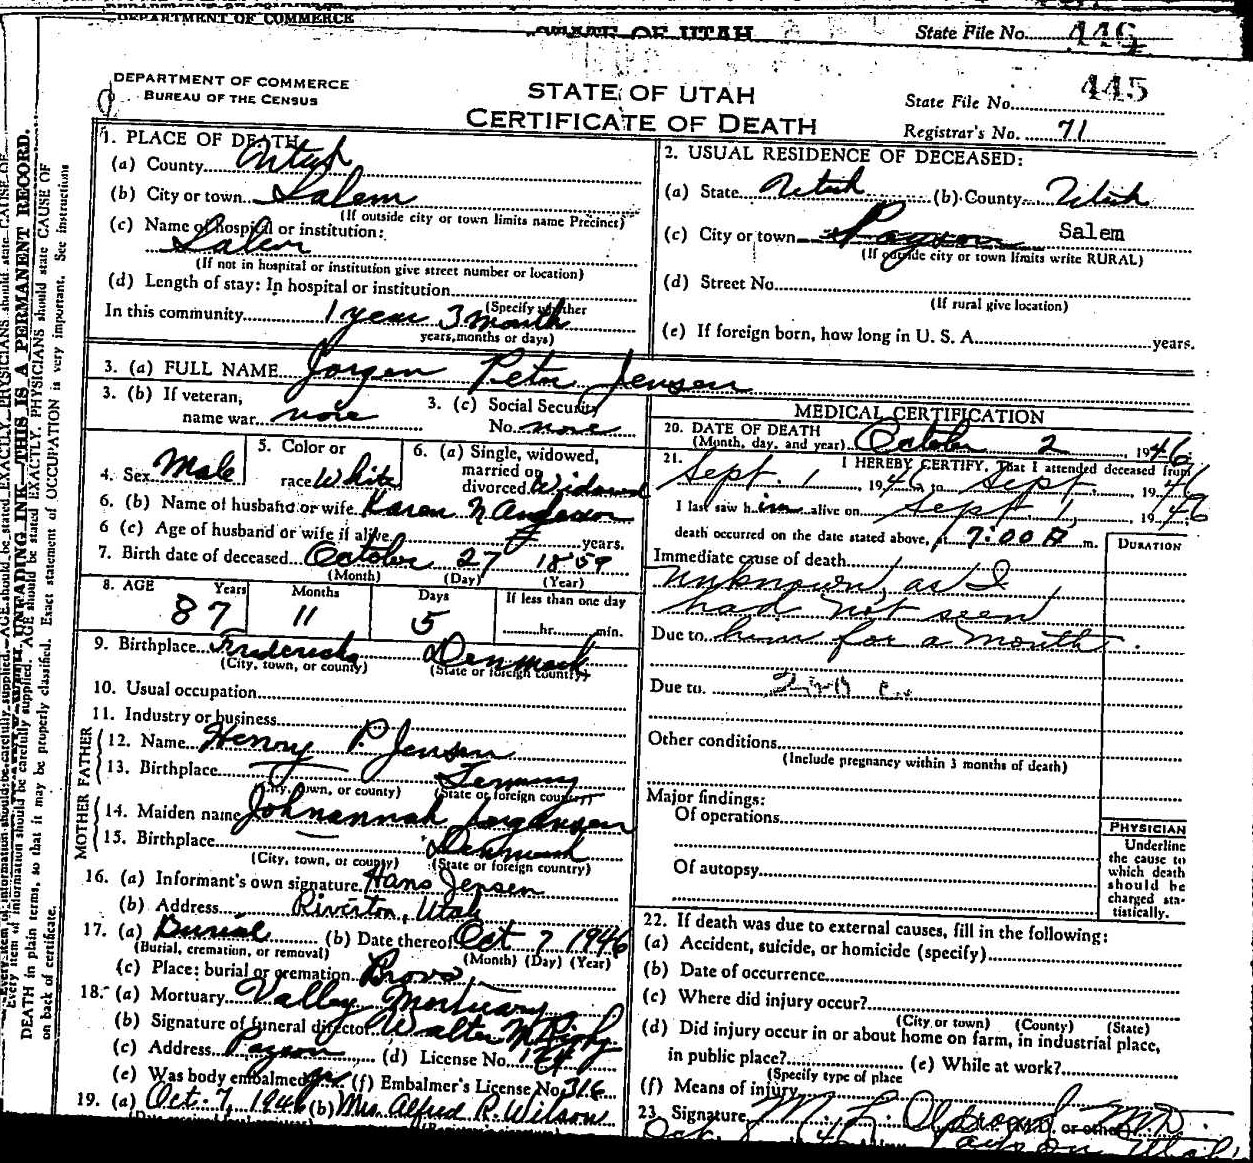 DEPARTMENT OF COMMERCE
STATE OF UTAH
State File No. 446
DEPARTMENT OF COMMERCE
BUREAU OF THE CENSUS
STATE OF UTAH
CERTIFICATE OF DEATH
State File No. 445
Registrar's No. 71
1. PLACE OF DEATH
(a) County Utah
(b) City or town Salem
(If outside city or town limits name Precinct)
(c) Name of hospital or institution:
Salem
(If not in hospital or institution give street number or location)
(d) Length of stay: In hospital or institution
(Specify whether
In this community 1 year 3 month
years, months or days)
2. USUAL RESIDENCE OF DECEASED:
(a) State Utah (b) County Utah
(c) City or town Payson Salem
(If outside city or town limits write RURAL)
(d) Street No.
(If rural give location)
(e) If foreign born, how long in U. S. A. years.
3. (a) FULL NAME Jorgen Peter Jensen
3. (b) If veteran, name war none
3. (c) Social Security No. none
4. Sex Male
5. Color or race White
6. (a) Single, widowed, married or divorced Widowed
6. (b) Name of husband or wife Karen N Anderson
6 (c) Age of husband or wife if alive years.
7. Birth date of deceased October 27 1859
(Month) (Day) (Year)
8. AGE Years Months Days If less than one day
87 11 5 hr. min.
9. Birthplace Denmark
(City, town, or county) (State or foreign country)
10. Usual occupation
11. Industry or business
FATHER
12. Name Henry P. Jensen
13. Birthplace
(City, town, or county) (State or foreign country)
MOTHER
14. Maiden name Johnannah Jorgensen
15. Birthplace Denmark
(City, town, or county) (State or foreign country)
16. (a) Informant's own signature Hans Jensen
(b) Address Riverton, Utah
17. (a) Burial (b) Date thereof Oct 7 1946
(Burial, cremation, or removal) (Month) (Day) (Year)
(c) Place: burial or cremation Provo
18. (a) Mortuary Valley Mortuary
(b) Signature of funeral director Walter N
(c) Address Payson (d) License No. 124
(e) Was body embalmed yes (f) Embalmer's License No. 316
19. (a) Oct. 7, 1946 (b) Mrs. Alfred R. Wilson
MEDICAL CERTIFICATION
20. DATE OF DEATH
(Month, day, and year) October 2 1946
21. I HEREBY CERTIFY, That I attended deceased from
Sept. 1, 1946, to Sept. 1946
I last saw him alive on Sept 1, 1946
death occurred on the date stated above, at 7:00 m.
DURATION
Immediate cause of death
unknown, as I
had not seen
Due to him for a month.
Due to
Other conditions
(Include pregnancy within 3 months of death)
Major findings:
Of operations
Of autopsy
PHYSICIAN
Underline
the cause to
which death
should be
charged sta-
tistically.
22. If death was due to external causes, fill in the following:
(a) Accident, suicide, or homicide (specify)
(b) Date of occurrence
(c) Where did injury occur?
(City or town) (County) (State)
(d) Did injury occur in or about home on farm, in industrial place,
in public place? (e) While at work?
(Specify type of place
(f) Means of injury
23. Signature M. L. M.D. or other)
Oct. Payson Utah
Every item of information should be carefully supplied. AGE should be stated EXACTLY. PHYSICIANS should state CAUSE OF
DEATH in plain terms, so that it may be properly classified. Exact statement of OCCUPATION is very important. See instructions
on back of certificate.
UNFADING INK—THIS IS A PERMANENT RECORD.